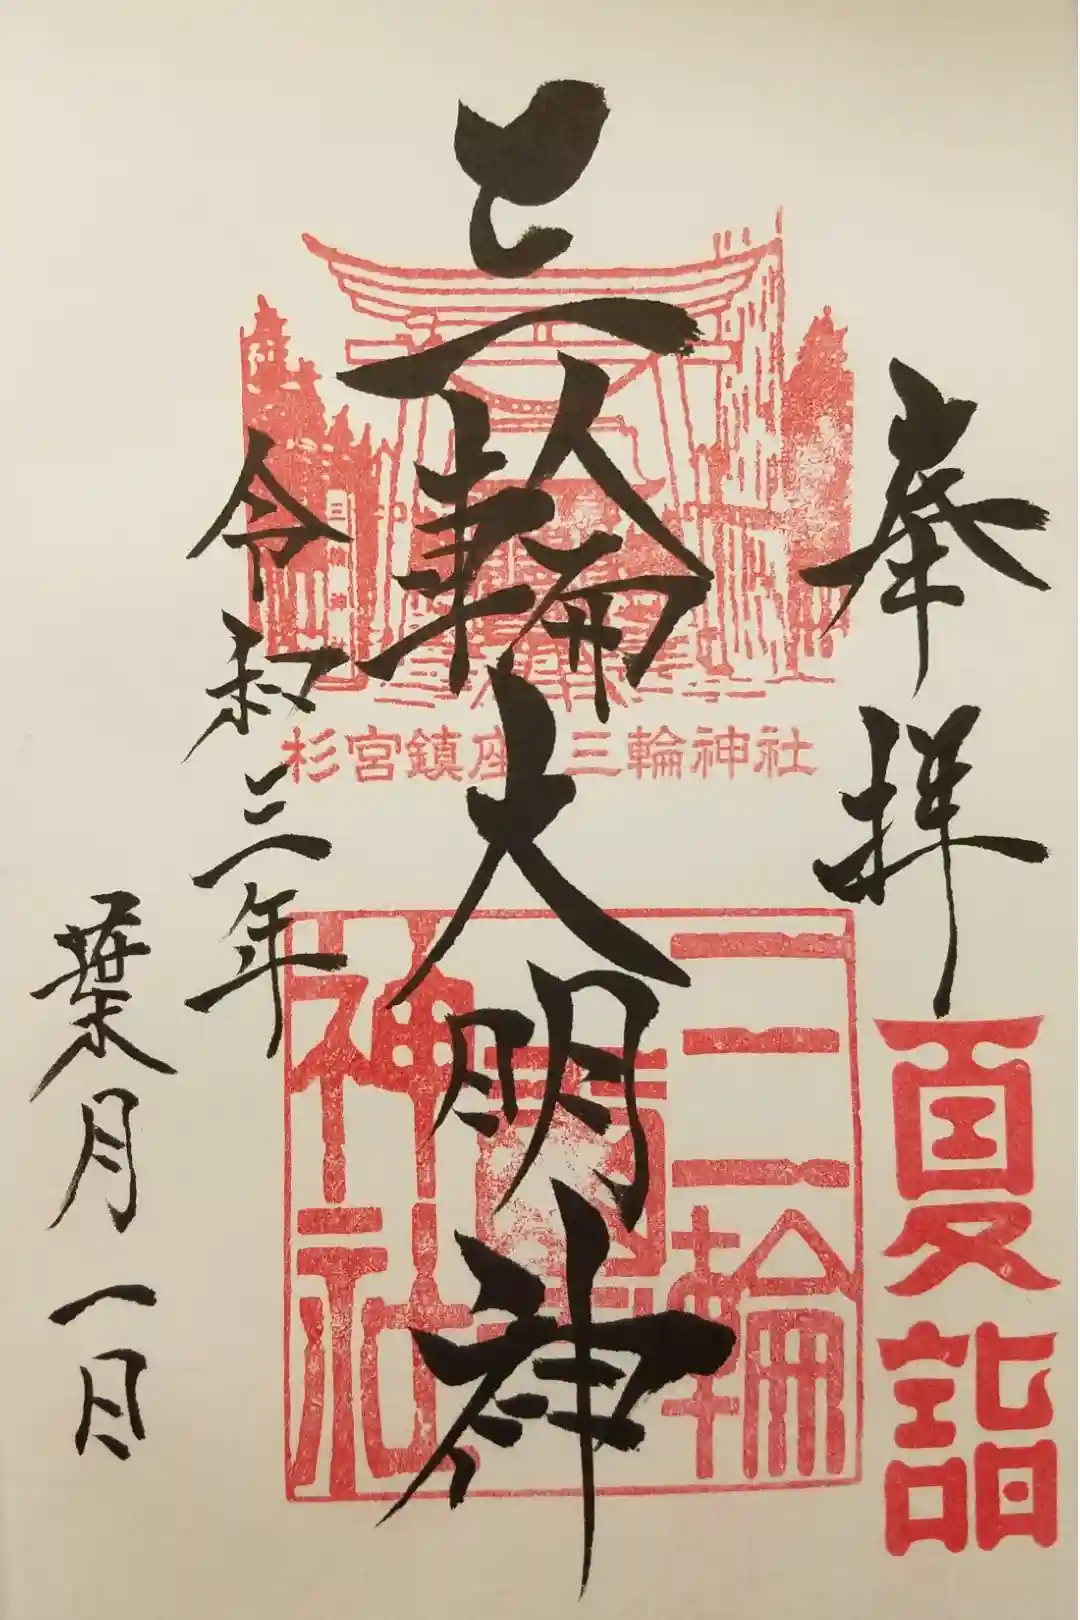 奉拝
夏詣
三輪大明神
杉宮鎮座 三輪神社
三輪
神社
令和三年
葉月一日